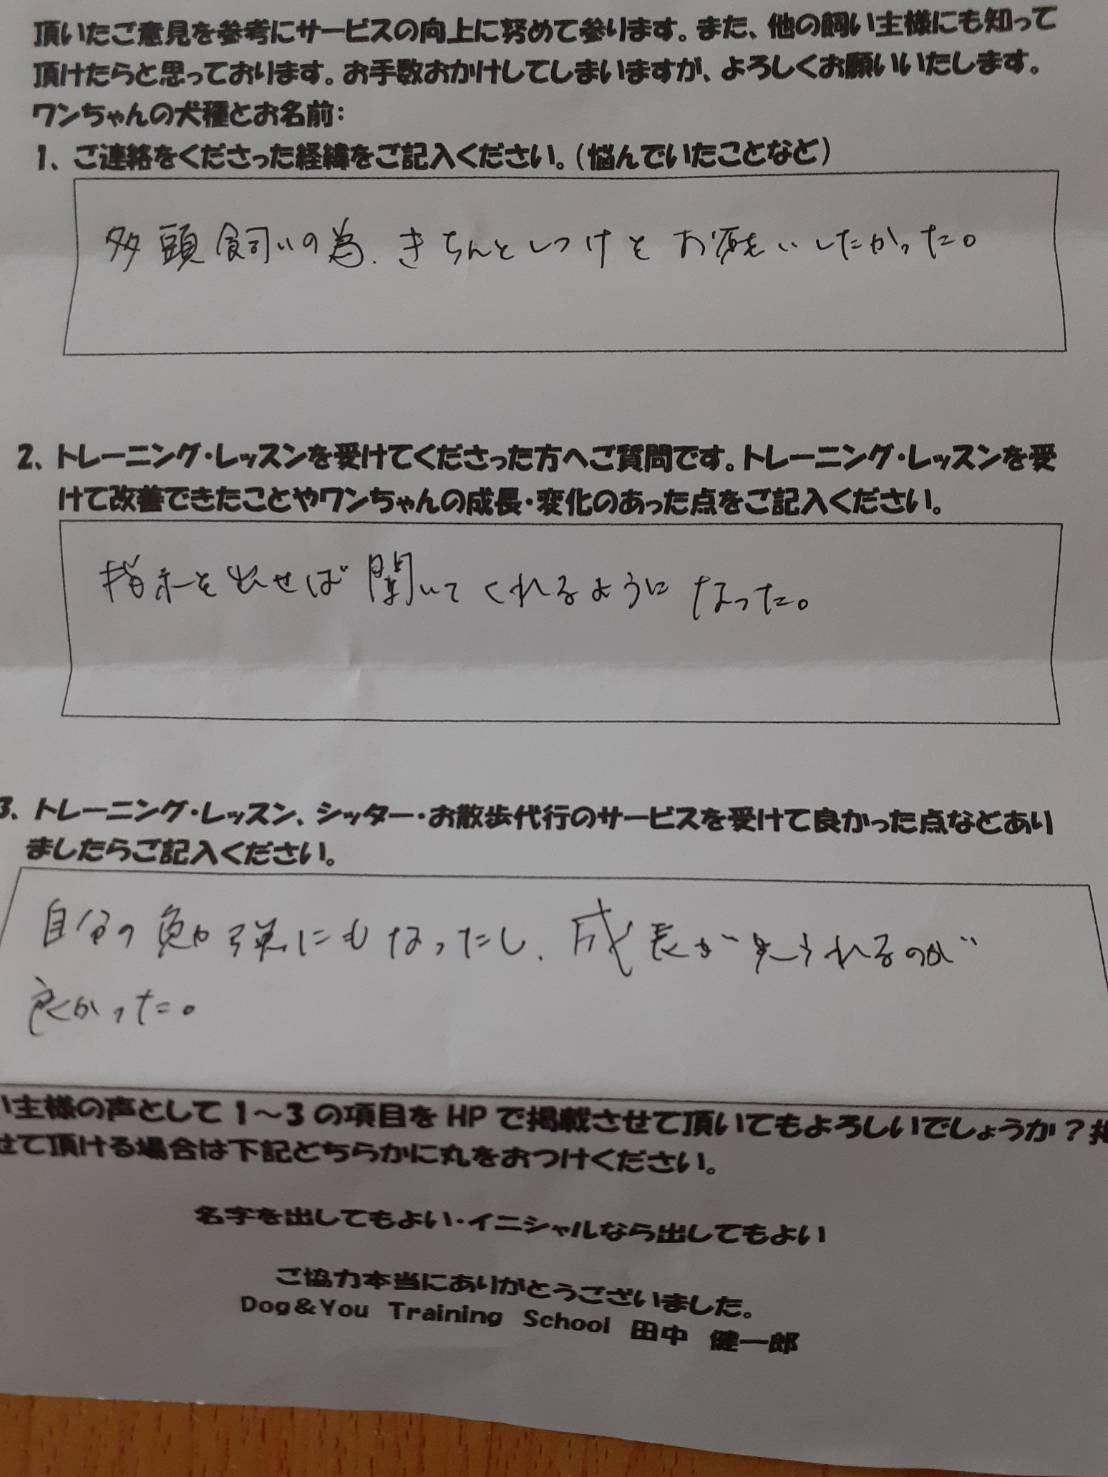 頂いたご意見を参考にサービスの向上に努めて参ります。また、他の飼い主様にも知って
頂けたらと思っております。お手数おかけしてしまいますが、よろしくお願いいたします。
ワンちゃんの犬種とお名前:
1、ご連絡をくださった経緯をご記入ください。(悩んでいたことなど)
多頭飼いの為、きちんとしつけをお願いしたかった。
2、トレーニング・レッスンを受けてくださった方へご質問です。トレーニング・レッスンを受
けて改善できたことやワンちゃんの成長・変化のあった点をご記入ください。
指示を出せば聞いてくれるようになった。
3、トレーニング・レッスン、シッター・お散歩代行のサービスを受けて良かった点などあり
ましたらご記入ください。
自分の勉強にもなったし、成長が見られるのが
良かった。
い主様の声として1〜3の項目をHPで掲載させて頂いてもよろしいでしょうか?掲
せて頂ける場合は下記どちらかに丸をおつけください。
名字を出してもよい・イニシャルなら出してもよい
ご協力本当にありがとうございました。
Dog&You Training School 田中 健一郎